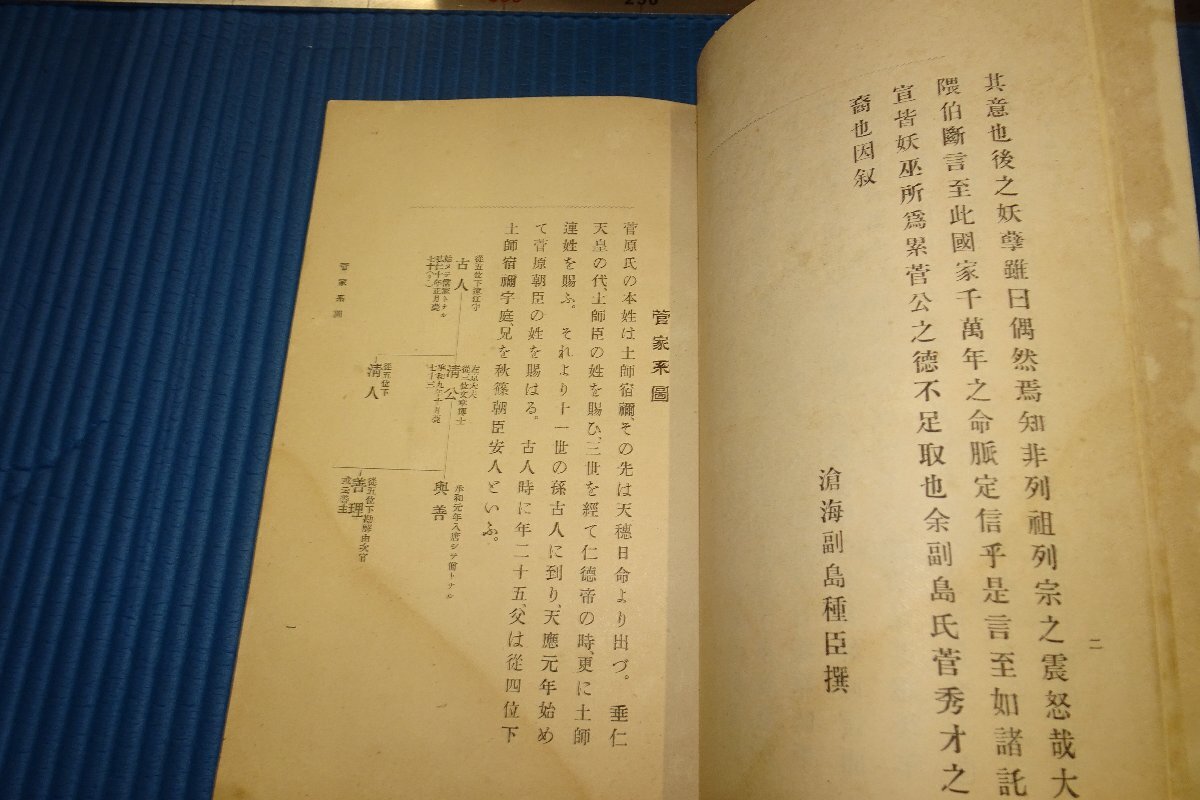 其意也後之妖孽雖曰偶然焉知非列祖列宗之震怒哉大
隈伯斷言至此國家千萬年之命脈定信乎是言至如諸託
宣皆妖巫所爲累菅公之德不足取也余副島氏菅秀才之
裔也因叙
滄海副島種臣撰
二
菅家系圖
菅原氏の本姓は土師宿禰、その先は天穂日命より出づ。垂仁
天皇の代、土師臣の姓を賜ひ、三世を經て仁德帝の時、更に土師
連姓を賜ふ。それより十一世の孫古人に到り、天應元年始め
て菅原朝臣の姓を賜はる。古人時に年二十五、父は從四位下
土師宿禰宇庭、兄を秋篠朝臣安人といふ。
從五位下遠江守
古人
清公
承和九年十月薨
從五位下
清人
承和元年入唐シテ僧トナル
與善
從五位下勘解由次官
善理
菅家系圖
一